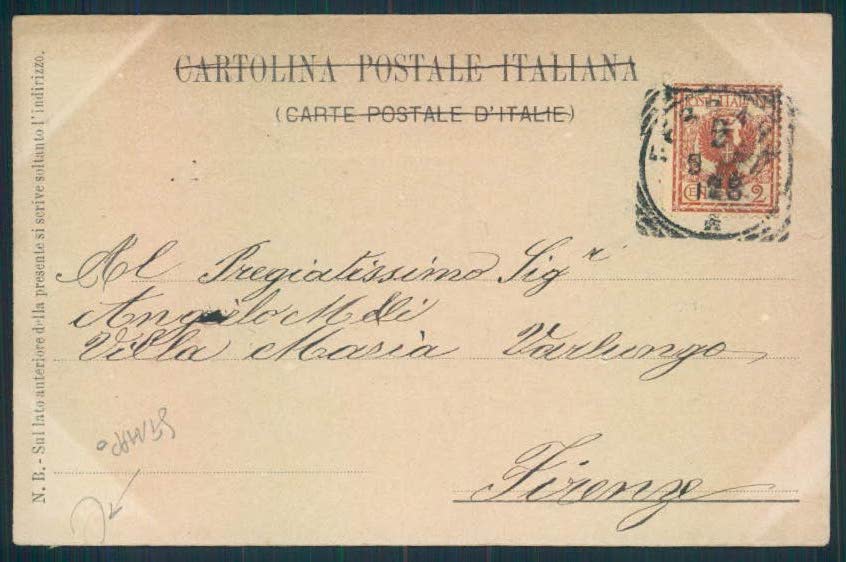 CARTOLINA POSTALE ITALIANA
(CARTE POSTALE D'ITALIE)
POSTE ITALIANE
2
Al Pregiatissimo Sigʳ
Angelo
Villa Maria Varlungo
Firenze
N. B. - Sul lato anteriore della presente si scrive soltanto l'indirizzo.